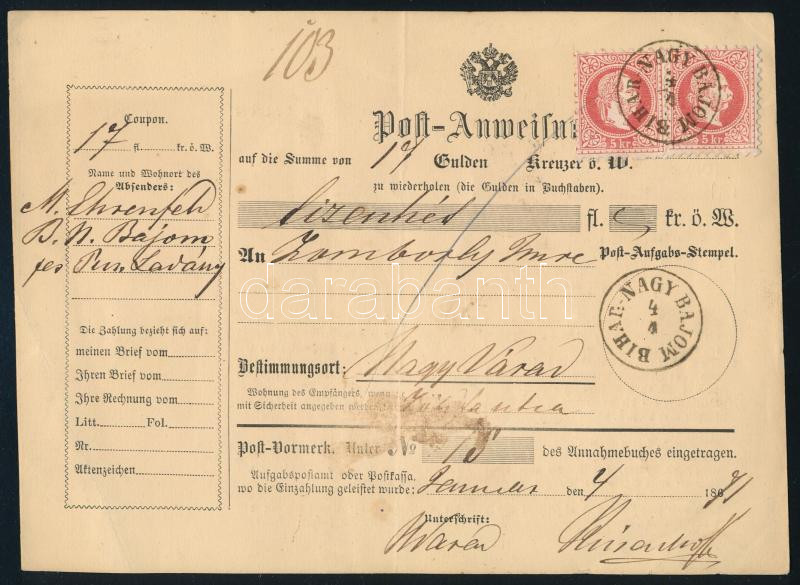 103
BIHAR-NAGY BAJOM
4
5 kr.
5 kr.
Post-Anweisun
auf die Summe von 17 Gulden Kreuzer ö. W.
zu wiederholen (die Gulden in Buchstaben).
tizenhét fl. kr. ö. W.
An Zamborly Imre
Post-Aufgabs-Stempel.
BIHAR-NAGY BAJOM
4
1
Bestimmungsort: Nagy Várad
Wohnung des Empfängers, wenn
mit Sicherheit angegeben werden
Post-Vormerk. Unter No 15 des Annahmebuches eingetragen.
Aufgabspostamt oder Postkassa,
wo die Einzahlung geleistet wurde: den 4 186 71
Unterschrift:
Coupon.
17 fl. kr. ö. W.
Name und Wohnort des
Absenders:
M. Ehrenfeld
B. N. Bájom
Püs. Ladány
Die Zahlung bezieht sich auf:
meinen Brief vom
Ihren Brief vom
Ihre Rechnung vom
Litt. Fol.
Nr.
Aktenzeichen.
darabanth